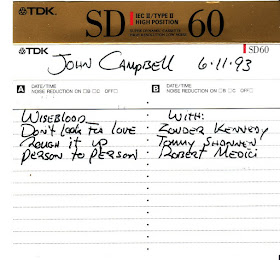 TDK
SD
IEC II / TYPE II
HIGH POSITION
60
TDK
SD60
JOHN CAMPBELL 6·11·93
A DATE/TIME
NOISE REDUCTION ON □B □C OFF□
B DATE/TIME
NOISE REDUCTION ON □B □C OFF□
WISEBLOOD
DON'T LOOK FOR LOVE
ROUGH IT UP
PERSON TO PERSON
WITH:
ZONDER KENNEDY
TOMMY SHANNON
ROBERT MEDICI